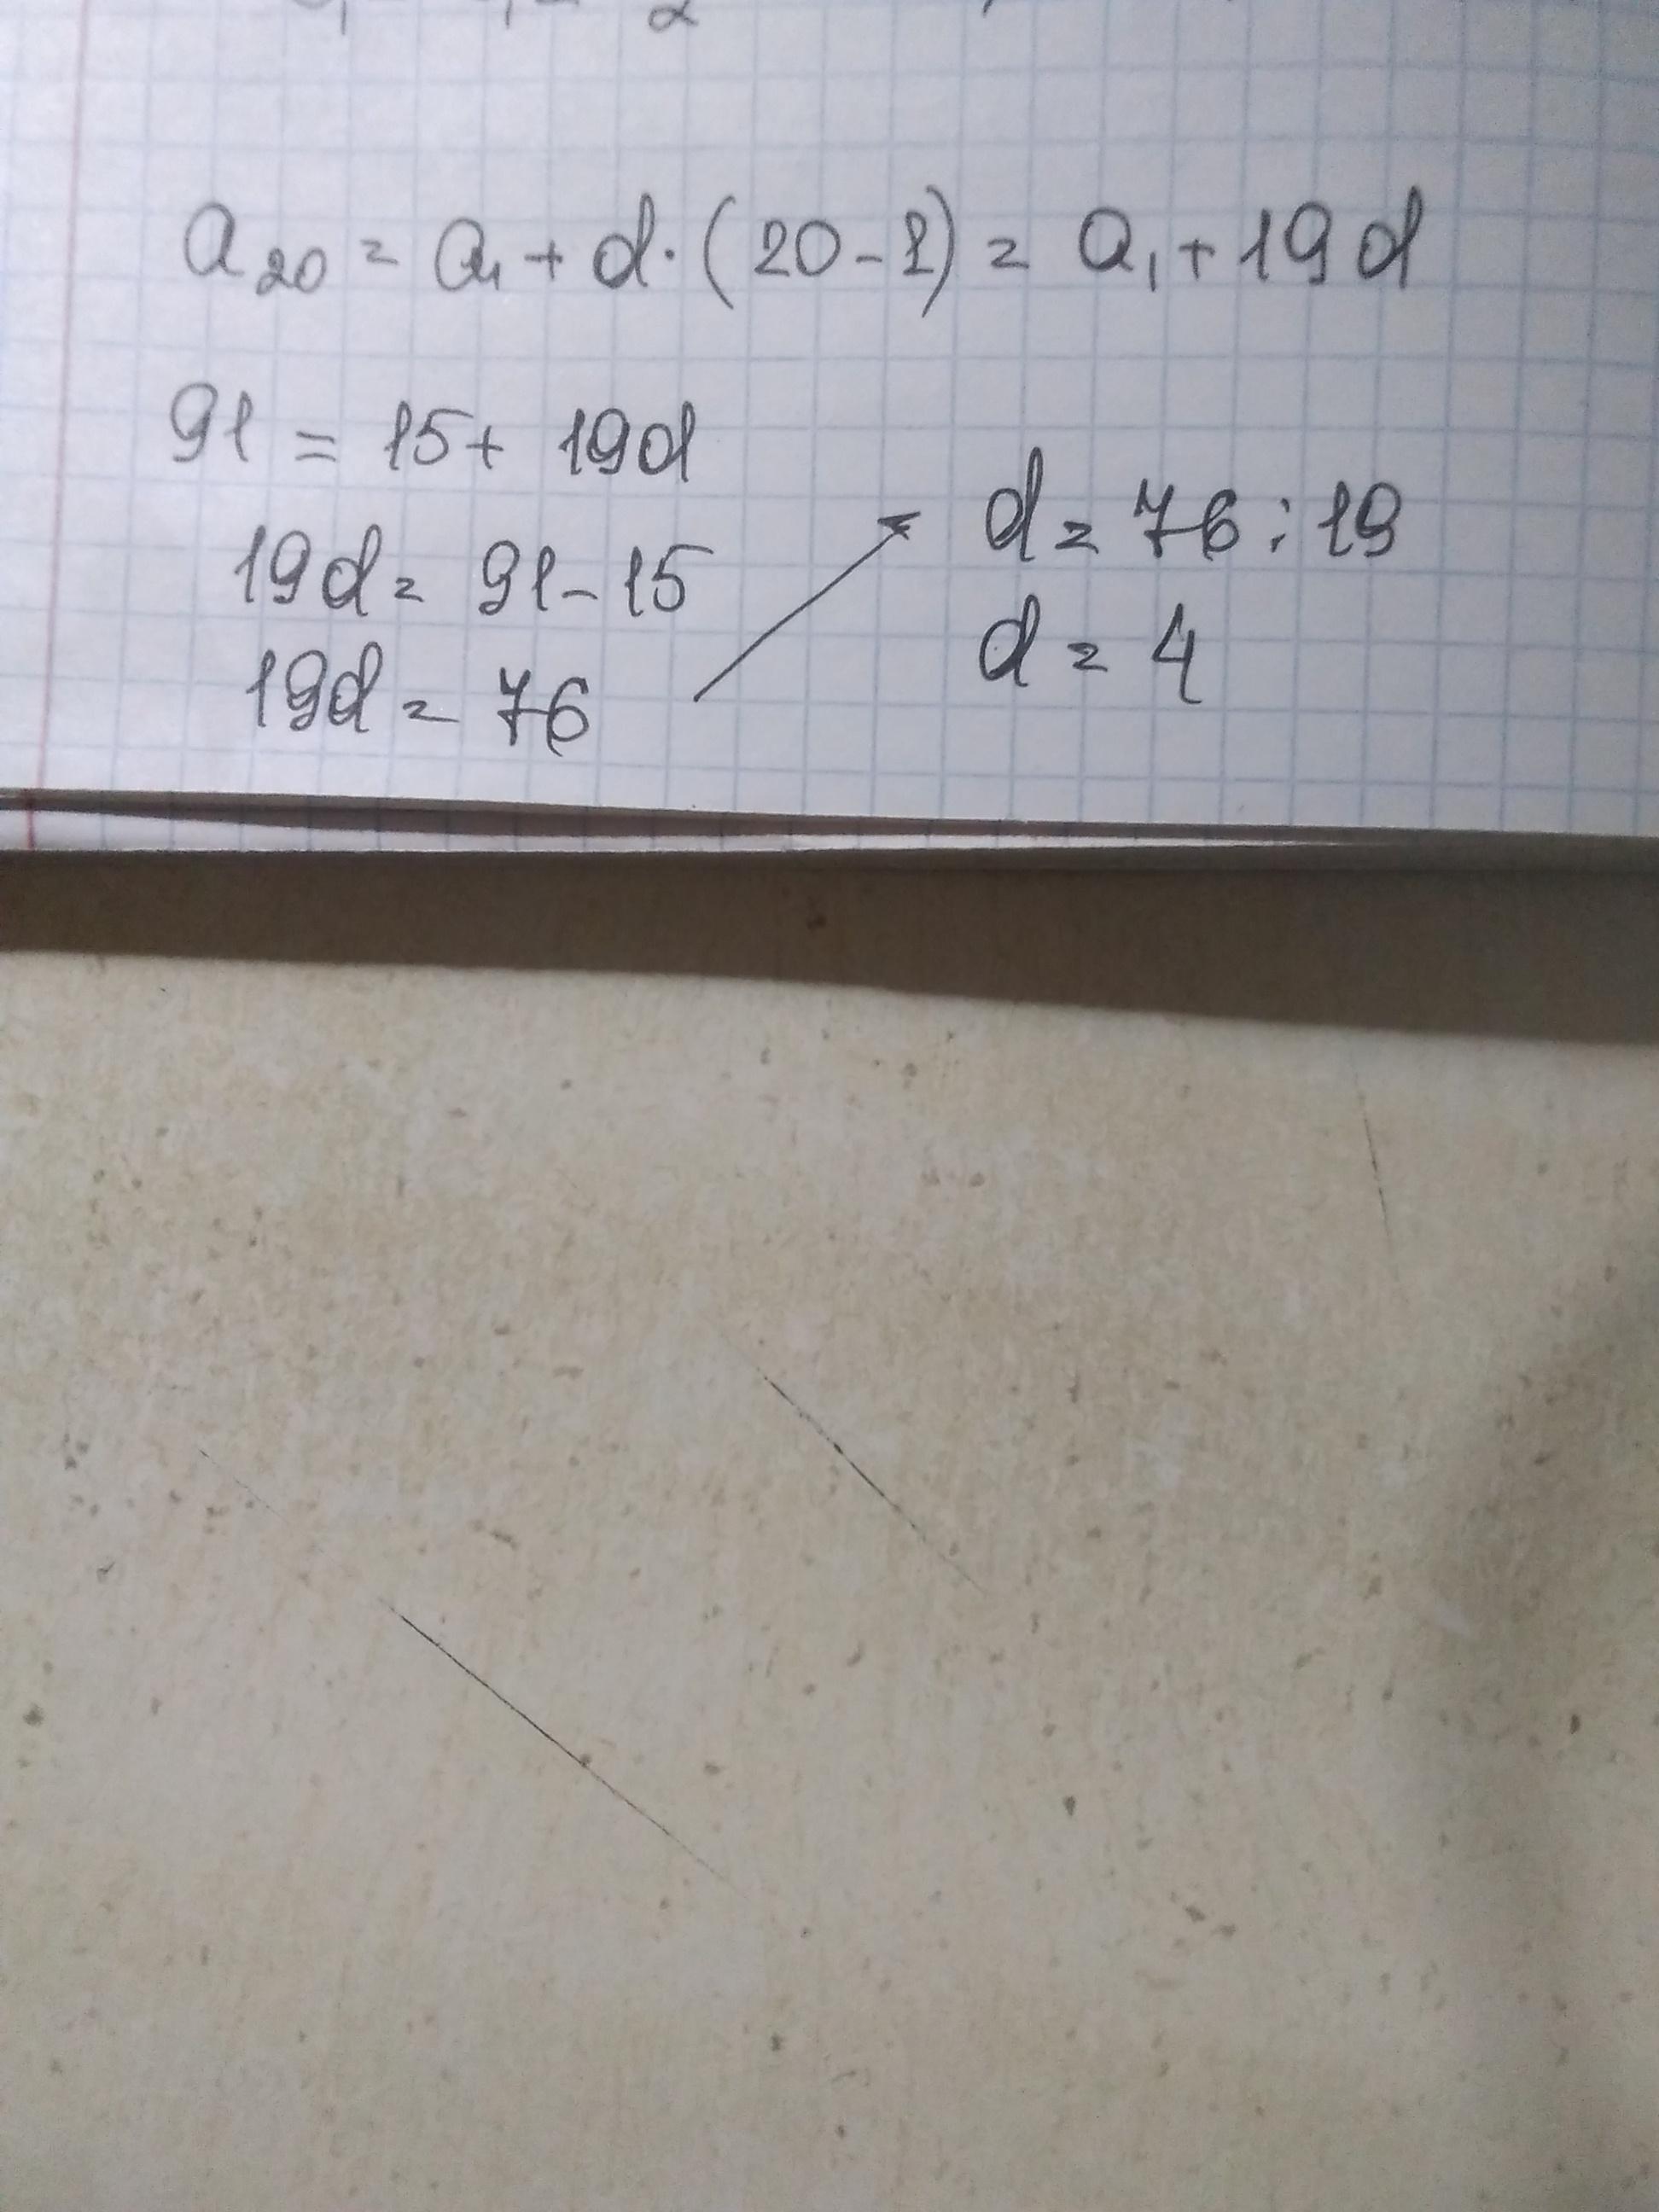 a₂₀ = a₁ + d · (20 - 1) = a₁ + 19d
91 = 15 + 19d
19d = 91 - 15
19d = 76
d = 76 : 19
d = 4